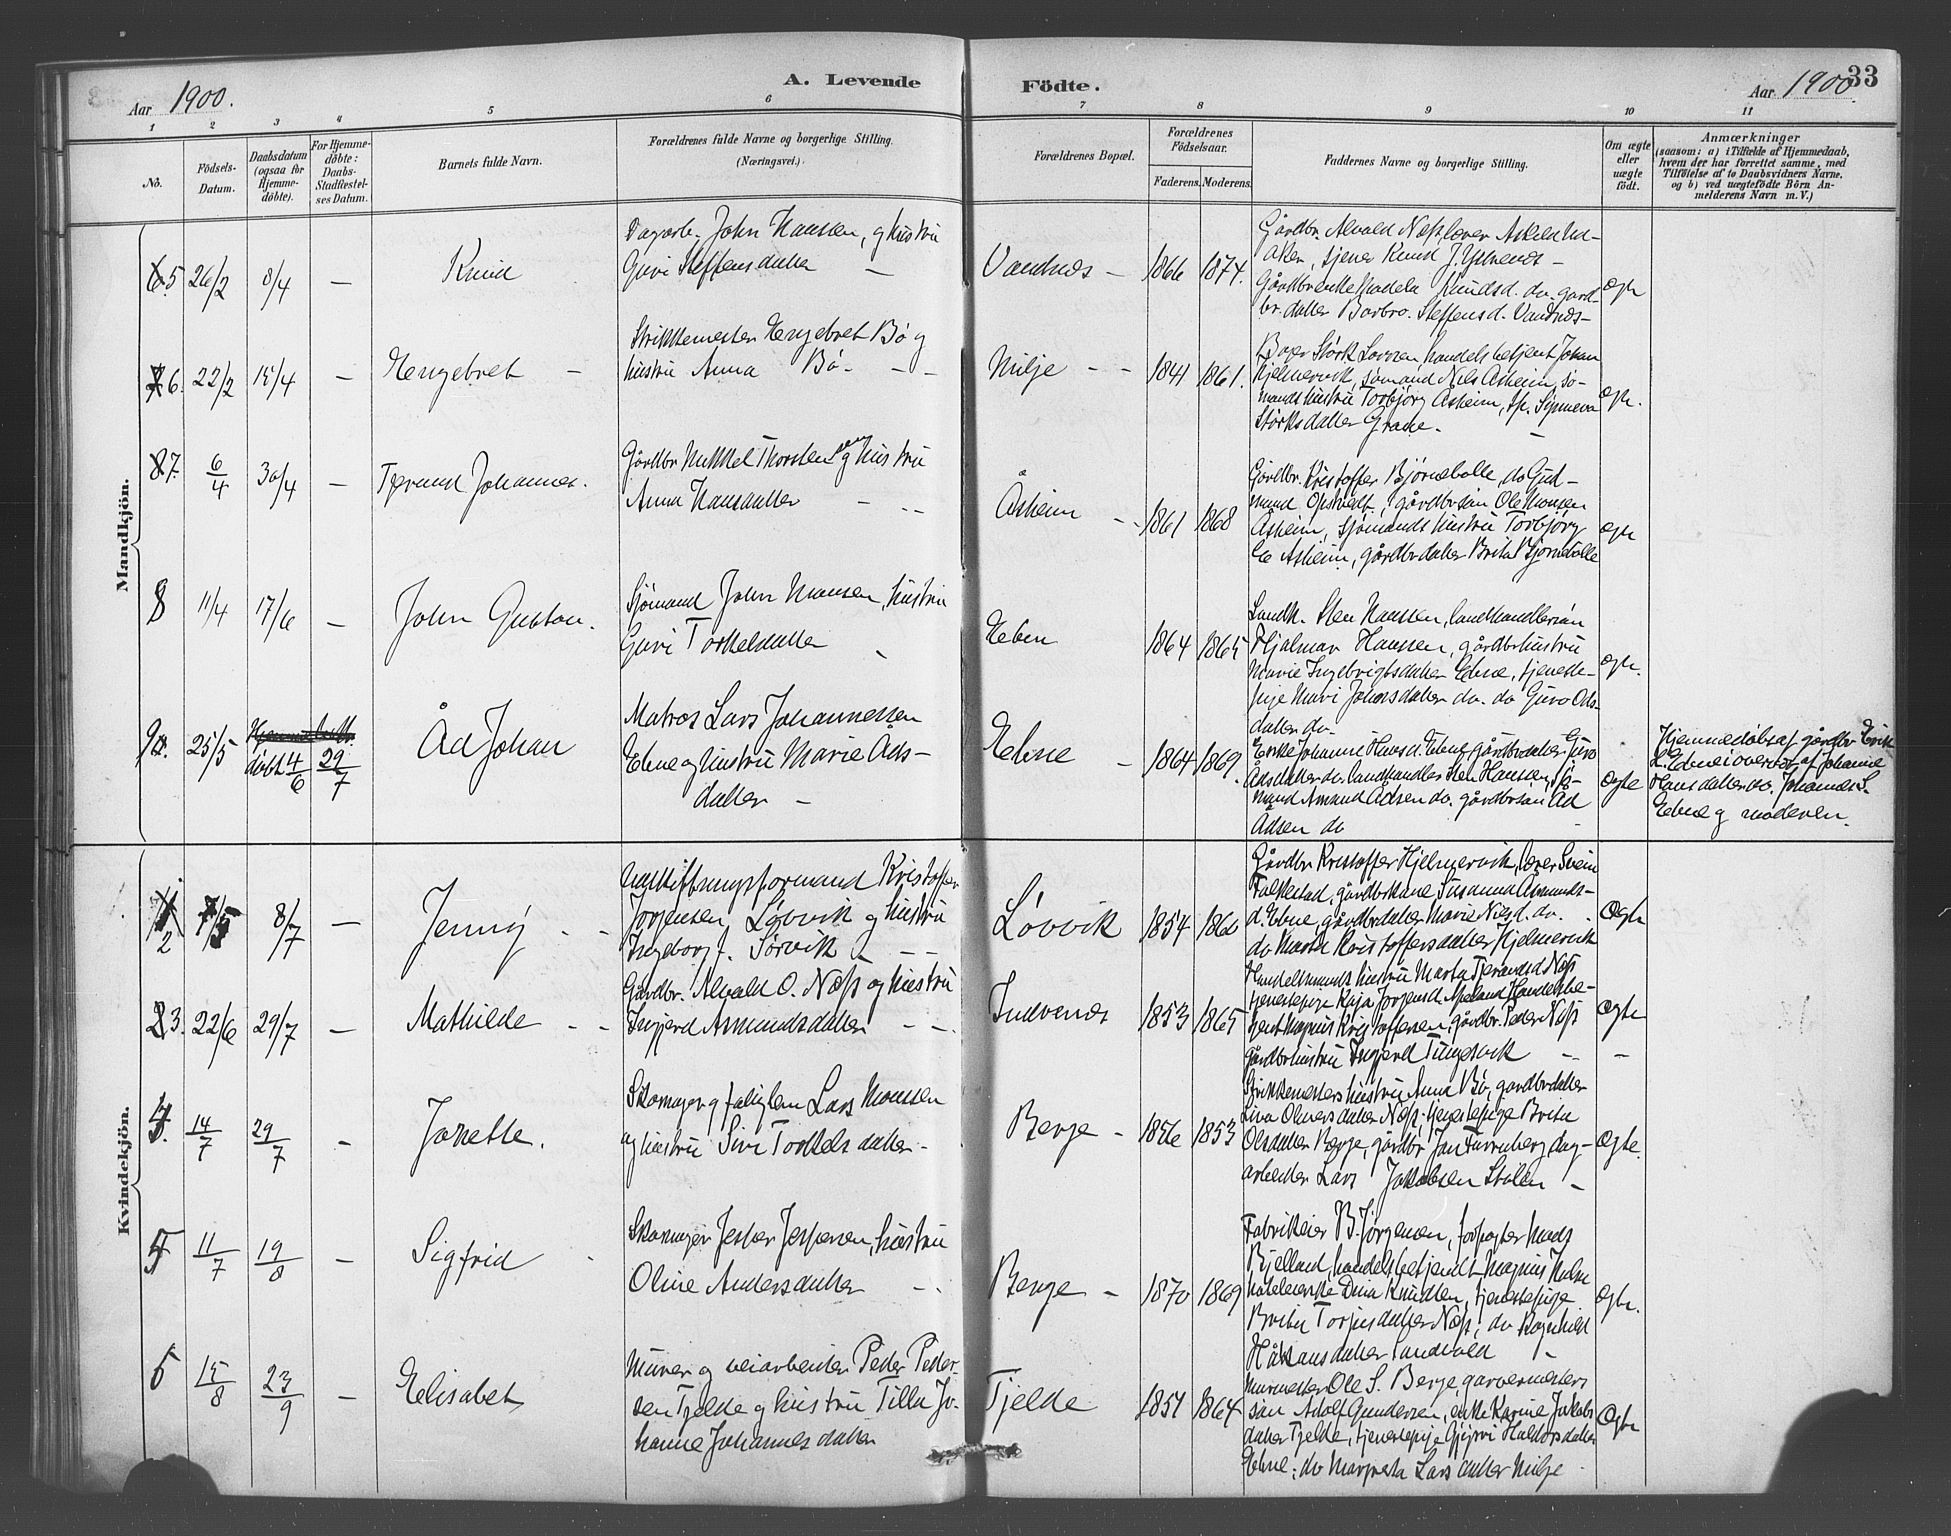 Aar 1900.
A. Levende
Födte.
Aar 1900.
33
1 2 3 4 5 6 7 8 9 10 11
No.
Födsels-
Datum.
Daabsdatum
(ogsaa for
Hjemme-
döbte).
For Hjemme-
döbte:
Daabs-
Stadfæstel-
ses Datum.
Barnets fulde Navn.
Forældrenes fulde Navne og borgerlige Stilling.
(Næringsvei).
Forældrenes Bopæl.
Forældrenes
Födselsaar.
Faderens. Moderens.
Faddernes Navne og borgerlige Stilling.
Om ægte
eller
uægte
födt.
Anmærkninger
(saasom: a) i Tilfælde af Hjemmedaab,
hvem der har forrettet samme, med
Tilföielse af to Daabsvidners Navne,
og b) ved uægtefödte Börn An-
melderens Navn m. V.)
Mandkjön.
5 26/2 8/4 — Knud
Dagarb. John Hansen, og hustru
Guri Steffensdatter —
Vandnes — 1866 1874.
Gårdbr. Alvald Næss,
Aker, tjener Knud
Gårdbrenke Knudsd. do. gård-
br. datter Barbro Steffensd. Vandnes —
ægte
6. 22/2 15/4 — Engebret —
Strikkemester Engebret Bø og
hustru Anna Bø — —
Milje — — 1841 1861.
Størk handelsbetjent Johan
Hjelmervik, sømand Nils Åsheim, sø-
mandshustru Torbjørg Åsheim,
Størksdatter Grane. —
ægte.
7. 6/4 30/4 — Tjerand Johannes.
Gårdbr. Mikkel Thorsten og hustru
Anna Hansdatter — —
Åsheim — 1861 1868
Gårdbr. Kristoffer Bjørnebolle, do Gud-
mund Opstvedt, gårdbrsøn Ole Monsen
Åsheim, sjømandshustru Torbjørg
E Åsheim, gårdbrdatter Brita Bjørnebolle
ægte
8 11/4 17/6 — John Gustav.
Sjømand John Monsen, hustru
Guri Torkelsdatter
Ebne 1864 1865
Landh. Sten Hanssen, landhandlersøn
Hjalmar Hanssen, gårdbrhustru
Marie Ingebrigtsdatter Ebne, tjeneste-
pige Mari Johnsdatter do. do Guro Ads-
datter do.
ægte.
9 25/5 Hjemme
døbt 4/6 29/7 Åd Johan
Matros Lars Johannessen
Ebne og hustru Marie Ads-
datter —
Ebne — 1864 1869.
Enke Johanne Hansd. Ebne, gårdbrdatter Guro
Adsdatter do. landhandler Sten Hanssen, sjø-
mand Amund Adsen do. gårdbrsøn Ad
Adsen do
ægte
Hjemmedøbt af gårdbr. Erik
L. Ebne i overvær af Johanne
Hansdatter do. Johannes S.
Ebne og moderen.
Kvindekjön.
2 7/5 8/7 — Jenny — —
Kristoffer
Jørgensen Løvvik og hustru
Ingeborg J. Sørvik — —
Løvvik 1854 1860
Gårdbr. Kristoffer Hjelmervik, lærer Svein
Falkestad, gårdbrkone Susanna Asmunds-
d. Ebne, gårdbrdatter Marie Nilsd. do.
do Marta Kristoffersdatter Hjelmervik
Ægte
3. 22/6 29/7 — Mathilde — —
Gårdbr. Alvald O. Næss og hustru
Ingjerd Asmundsdatter — —
Indrenes 1853 1865
Handelsmandshustru Marta Tjerandsd Næss
tjenestepige Kaja Jørgensd. Handelsbe-
tjent Magnus Kristoffersen, gårdbr. Peder Næss
gårdbrhustru Ingjerd Tungesvik —
Ægte —
4. 14/7 29/7 — Janette.
Skomager og fattiglem Lars Monsen
og hustru Siri Torkelsdatter —
Berge — 1856 1853
Strikkemesters hustru Anna Bø, gårdbrdatter
Olversdatter Næss, tjenestepige Brita
Olsdatter Berge, gårdbr Jan dag-
arbeider Lars Jakobsen Stolen —
Ægte.
5 11/7 19/8 — Sigfrid —
Skomager Jesper Jespersen, hustru
Oline Andersdatter — —
Berge — 1870 1869
Fabrikeier B. Jørgensen, forpagter Mads
Bjelland, handelsbetjent Magnus
hotelleierske Dina Knudsen, tjenestepige
Brita Torjusdatter Næss, do Ragnhild
Håkonsdatter Sandvold —
Ægte.
6 15/8 23/9 — Elisabet
Murer og veiarbeider Peder Peder-
sen Tjelde og hustru Tilla Jo-
hanne Johannesdatter
Tjelde 1851 1864
Murmester Ole S. Berge, garvermesters
søn Adolf Gundersen, enke Karine Jakobs
datter Tjelde, tjenestepige Gjyri Haldorsdatter
Ebne: do Margreta Larsdatter Milje
Ægte